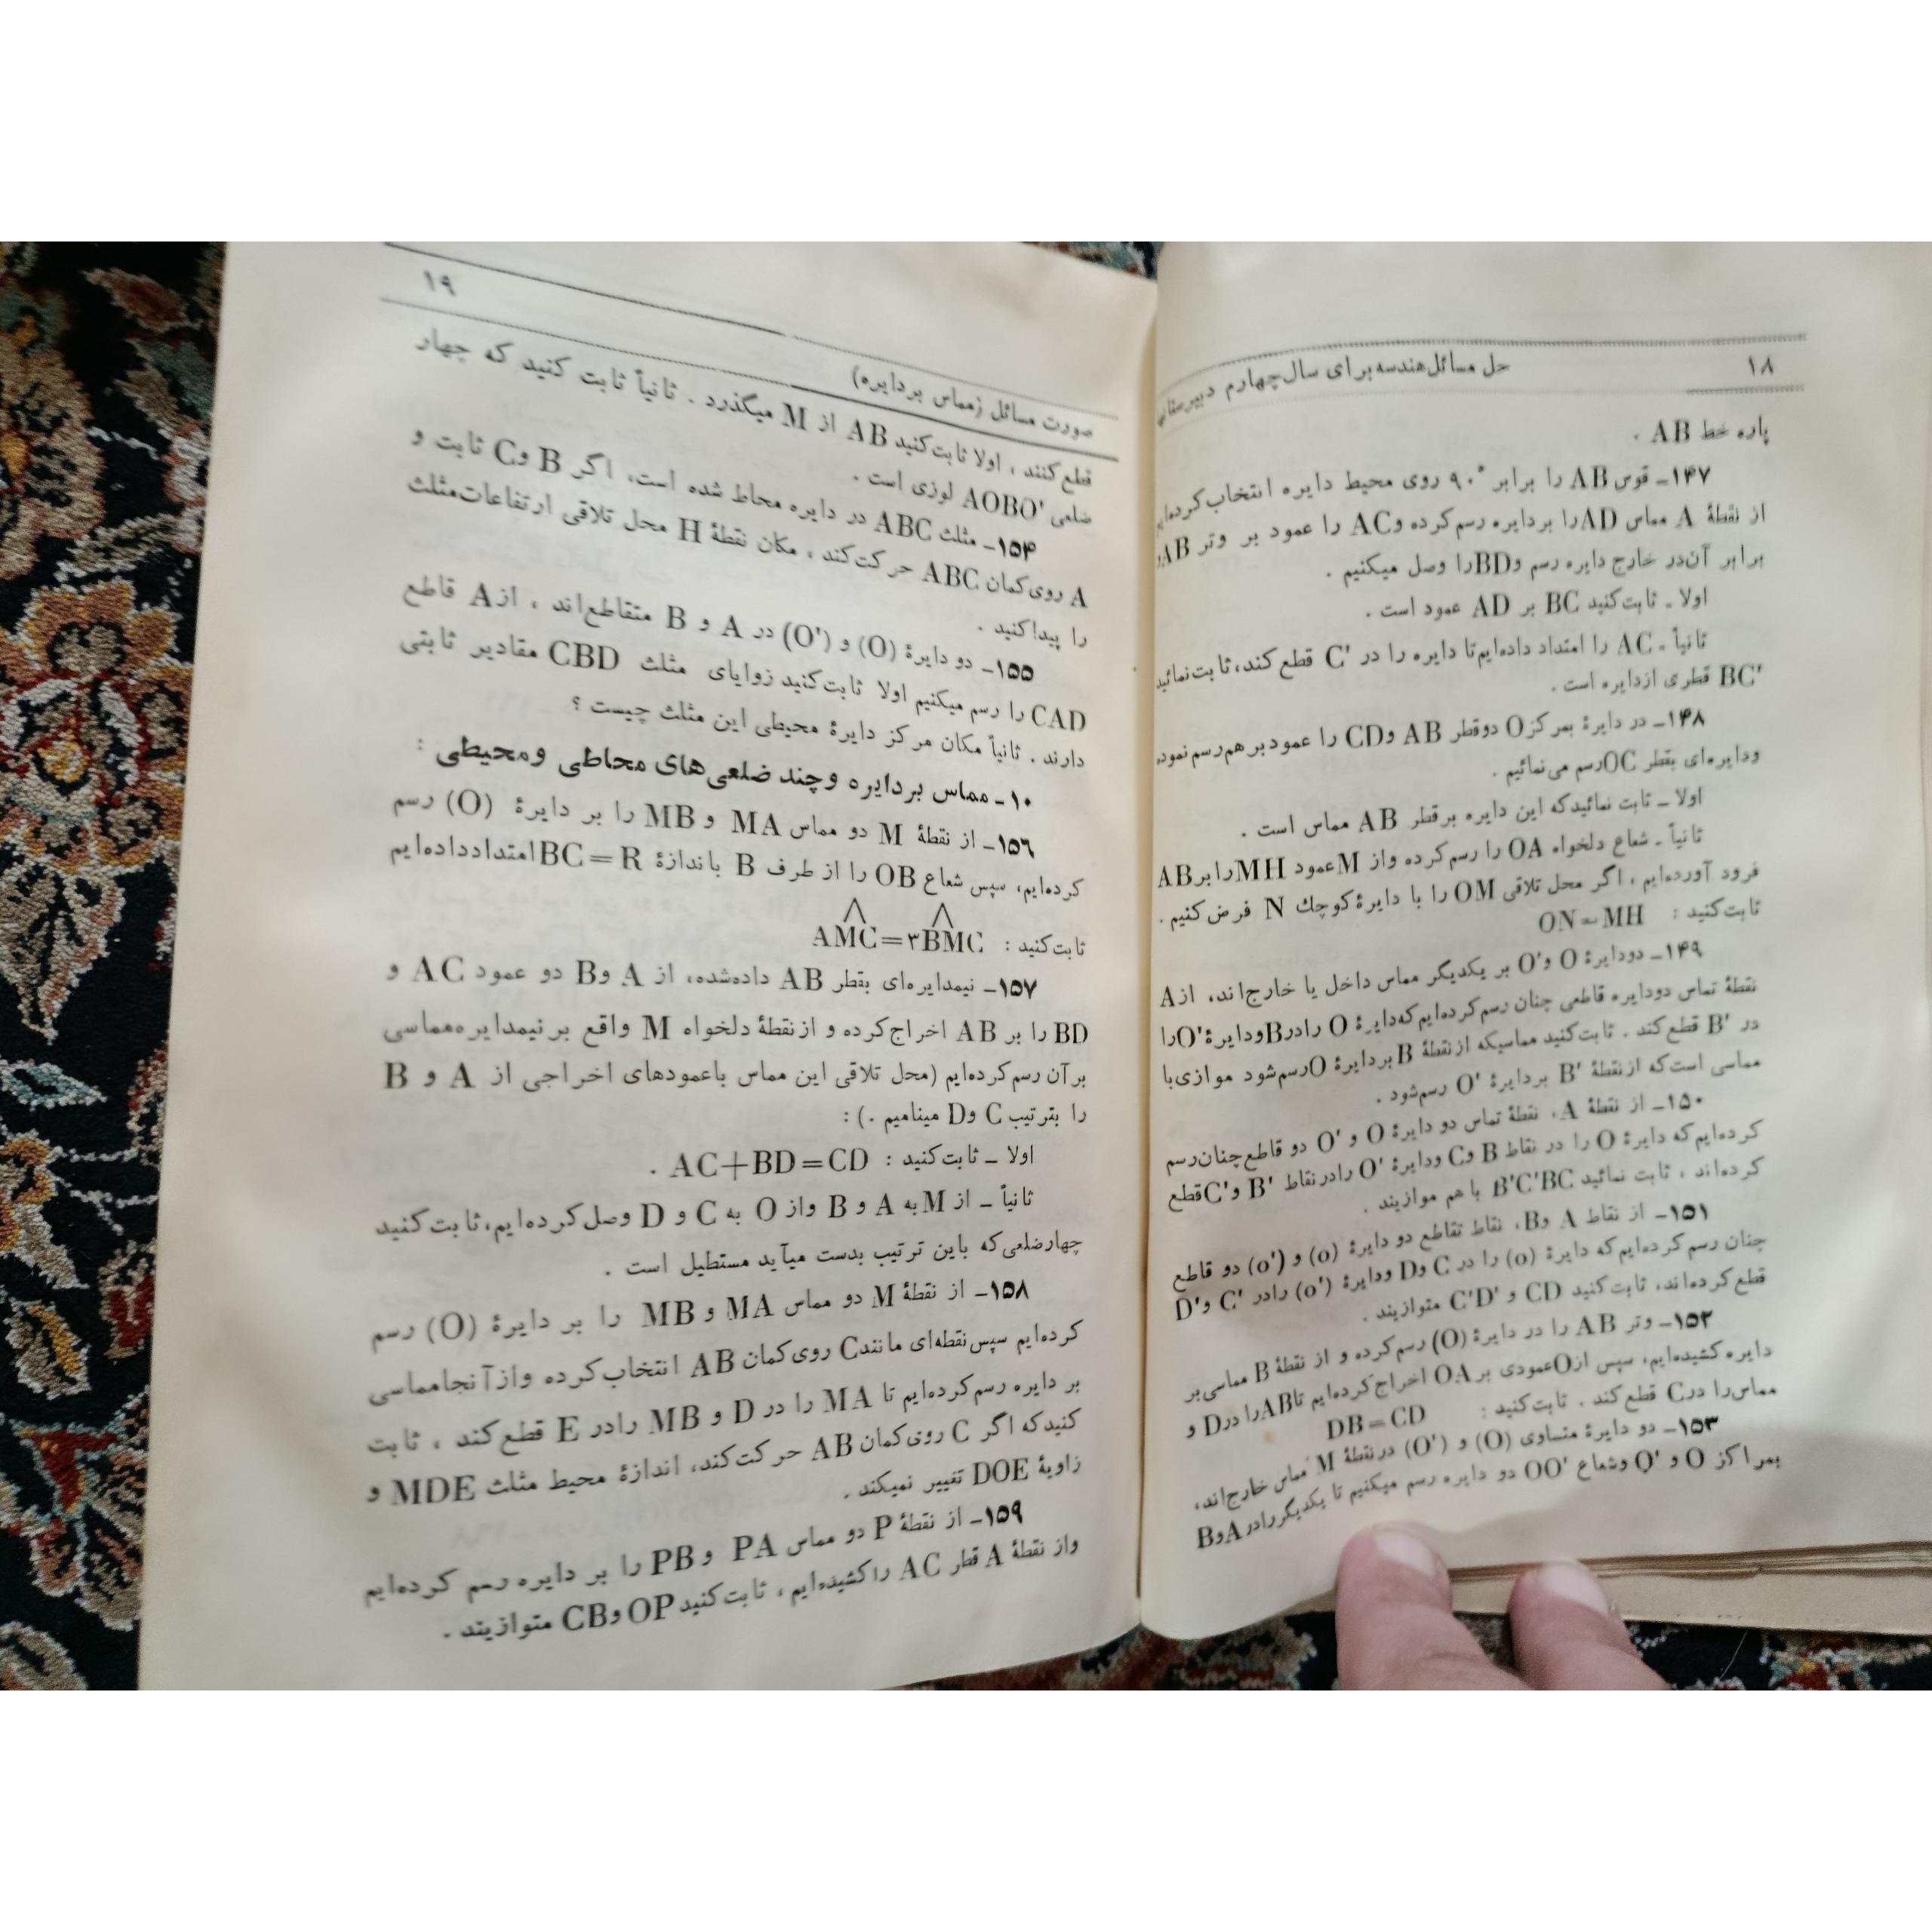 ۱۸
حل مسائل هندسه برای سال چهارم دبیرستانها
پاره خط AB .
۱۴۷ـ قوس AB را برابر ۹۰° روی محیط دایره انتخاب کرده‌ایم
از نقطهٔ A مماس AD را بر دایره رسم کرده و AC را عمود بر وتر AB و
برابر آن در خارج دایره رسم و BD را وصل میکنیم .
اولا ـ ثابت کنید BC بر AD عمود است .
ثانیاً ـ AC را امتداد داده‌ایم تا دایره را در C' قطع کند، ثابت نمائید
BC' قطری از دایره است .
۱۴۸ـ در دایرهٔ بمرکز O دو قطر AB و CD را عمود بر هم رسم نموده
و دایره‌ای بقطر OC رسم می‌نمائیم .
اولا ـ ثابت نمائید که این دایره بر قطر AB مماس است .
ثانیاً ـ شعاع دلخواه OA را رسم کرده و از M عمود MH را بر AB
فرود آورده‌ایم ، اگر محل تلاقی OM را با دایرهٔ کوچك N فرض کنیم .
ثابت کنید : ON=MH
۱۴۹ـ دو دایرهٔ O و O' بر یکدیگر مماس داخل یا خارج‌اند، از A
نقطهٔ تماس دو دایره قاطعی چنان رسم کرده‌ایم که دایرهٔ O را در B و دایرهٔ O' را
در B' قطع کند . ثابت کنید مماسیکه از نقطهٔ B بر دایرهٔ O رسم شود موازی با
مماسی است که از نقطهٔ B' بر دایرهٔ O' رسم شود .
۱۵۰ـ از نقطهٔ A، نقطهٔ تماس دو دایرهٔ O و O' دو قاطع چنان رسم
کرده‌ایم که دایرهٔ O را در نقاط B و C و دایرهٔ O' را در نقاط B' و C' قطع
کرده‌اند ، ثابت نمائید B'C' BC با هم موازیند .
۱۵۱ـ از نقاط A و B، نقاط تقاطع دو دایرهٔ (o) و (o') دو قاطع
چنان رسم کرده‌ایم که دایرهٔ (o) را در C و D و دایرهٔ (o') را در C' و D'
قطع کرده‌اند، ثابت کنید CD و C'D' متوازیند .
۱۵۲ـ وتر AB را در دایرهٔ (O) رسم کرده و از نقطهٔ B مماسی بر
دایره کشیده‌ایم، سپس از O عمودی بر OA اخراج کرده‌ایم تا AB را در D و
مماس را در C قطع کند . ثابت کنید : DB=CD
۱۵۳ـ دو دایرهٔ متساوی (O) و (O') در نقطهٔ M مماس خارج‌اند،
بمراکز O و O' و شعاع OO' دو دایره رسم میکنیم تا یکدیگر را در A و B
صورت مسائل (مماس بر دایره)
۱۹
قطع کنند ، اولا ثابت کنید AB از M میگذرد . ثانیاً ثابت کنید که چهار
ضلعی AOBO' لوزی است .
۱۵۴ـ مثلث ABC در دایره محاط شده است، اگر B و C ثابت و
A روی کمان ABC حرکت کند ، مکان نقطهٔ H محل تلاقی ارتفاعات مثلث
را پیدا کنید .
۱۵۵ـ دو دایرهٔ (O) و (O') در A و B متقاطع‌اند ، از A قاطع
CAD را رسم میکنیم اولا ثابت کنید زوایای مثلث CBD مقادیر ثابتی
دارند . ثانیاً مکان مرکز دایرهٔ محیطی این مثلث چیست ؟
۱۰ـ مماس بردایره و چند ضلعی‌های محاطی و محیطی :
۱۵۶ـ از نقطهٔ M دو مماس MA و MB را بر دایرهٔ (O) رسم
کرده‌ایم، سپس شعاع OB را از طرف B باندازهٔ BC=R امتداد داده‌ایم
ثابت کنید : AMC=۳BMC
۱۵۷ـ نیمدایره‌ای بقطر AB داده شده، از A و B دو عمود AC و
BD را بر AB اخراج کرده و از نقطهٔ دلخواه M واقع بر نیمدایره مماسی
بر آن رسم کرده‌ایم (محل تلاقی این مماس با عمودهای اخراجی از A و B
را بترتیب C و D مینامیم .) :
اولا ـ ثابت کنید : AC+BD=CD .
ثانیاً ـ از M به A و B و از O به C و D وصل کرده‌ایم، ثابت کنید
چهارضلعی که باین ترتیب بدست میآید مستطیل است .
۱۵۸ـ از نقطهٔ M دو مماس MA و MB را بر دایرهٔ (O) رسم
کرده‌ایم سپس نقطه‌ای مانند C روی کمان AB انتخاب کرده و از آنجا مماسی
بر دایره رسم کرده‌ایم تا MA را در D و MB را در E قطع کند ، ثابت
کنید که اگر C روی کمان AB حرکت کند، اندازهٔ محیط مثلث MDE و
زاویهٔ DOE تغییر نمیکند .
۱۵۹ـ از نقطهٔ P دو مماس PA و PB را بر دایره رسم کرده‌ایم
و از نقطهٔ A قطر AC را کشیده‌ایم ، ثابت کنید OP و CB متوازیند .